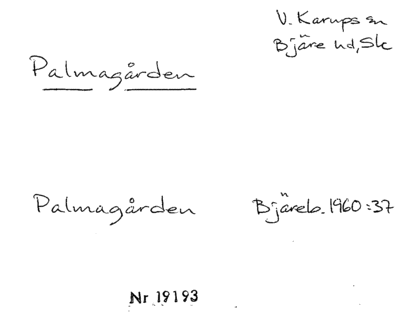 V. Karups sn
Bjäre hd, Sk
Palmagården
Palmagården Bjäreb. 1960:37
Nr 19193